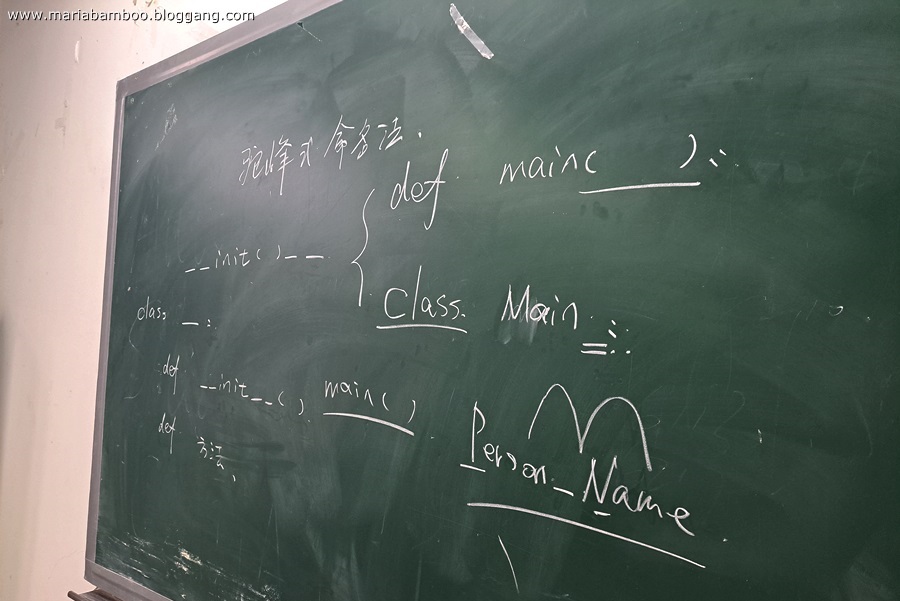 www.mariabamboo.bloggang.com
驼峰式命名法.
def main( ):
__init()__
class Main:
class __:
def __init__( ), main( )
def 方法
Person_Name